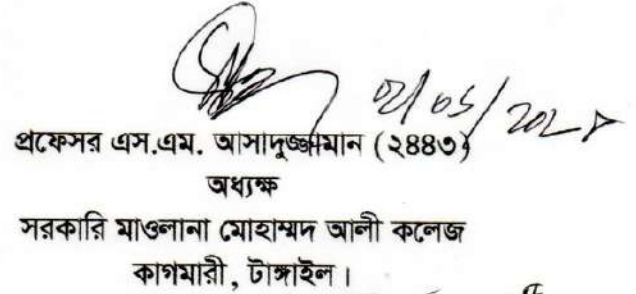 প্রফেসর এস.এম. আসাদুজ্জামান (২৪৪৩)
অধ্যক্ষ
সরকারি মাওলানা মোহাম্মদ আলী কলেজ
কাগমারী, টাঙ্গাইল।